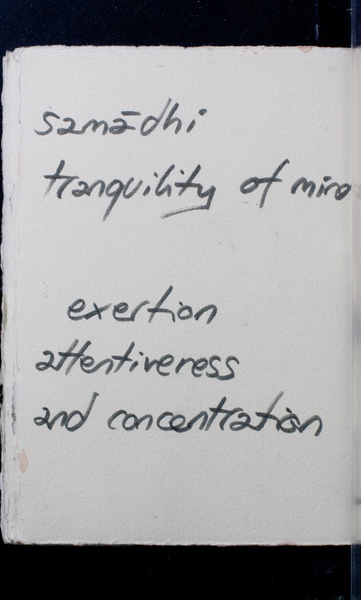 samādhi
tranquility of mind
exertion
attentiveness
and concentration